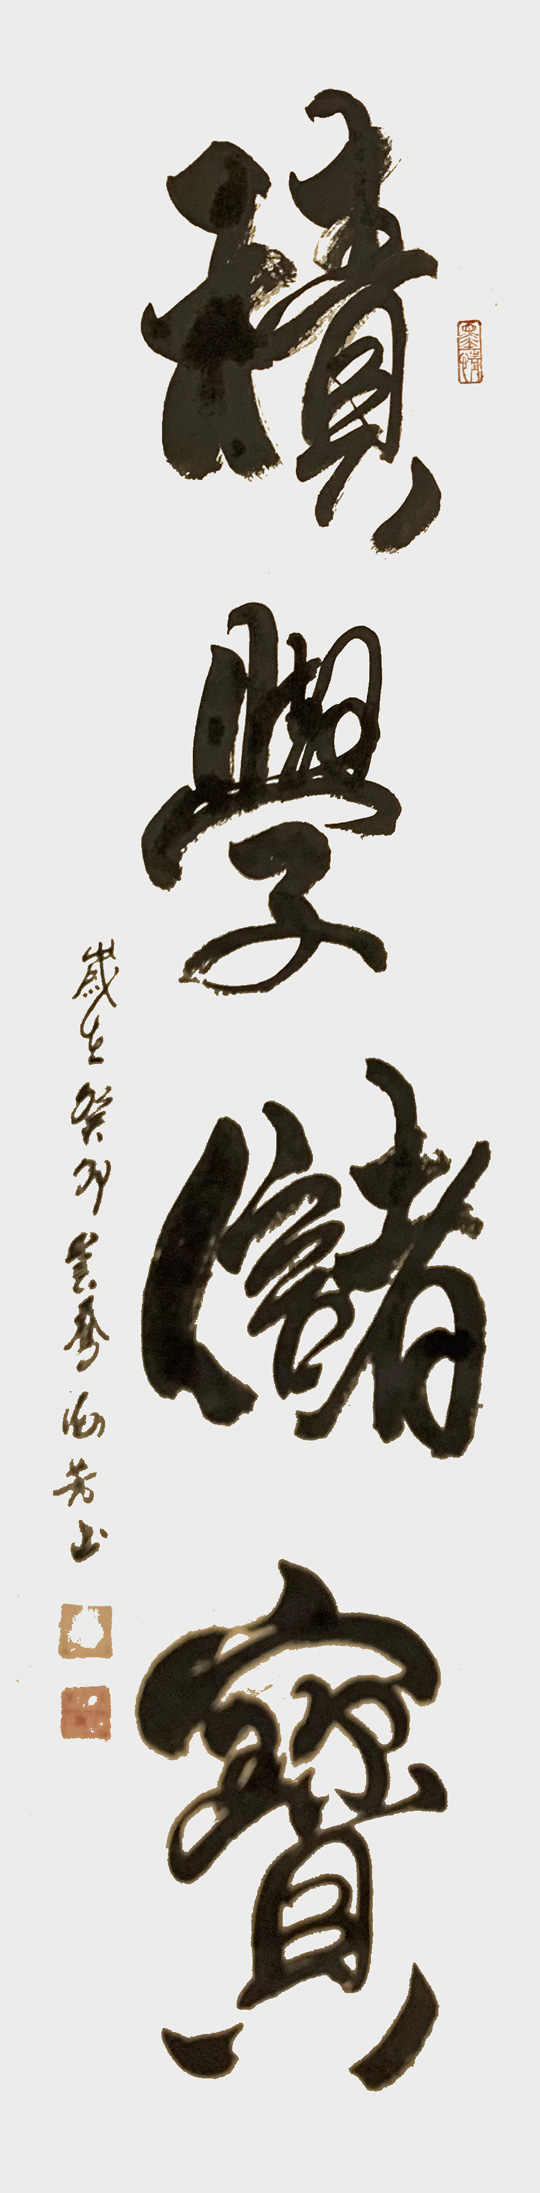 積學儲寶
歲在癸卯